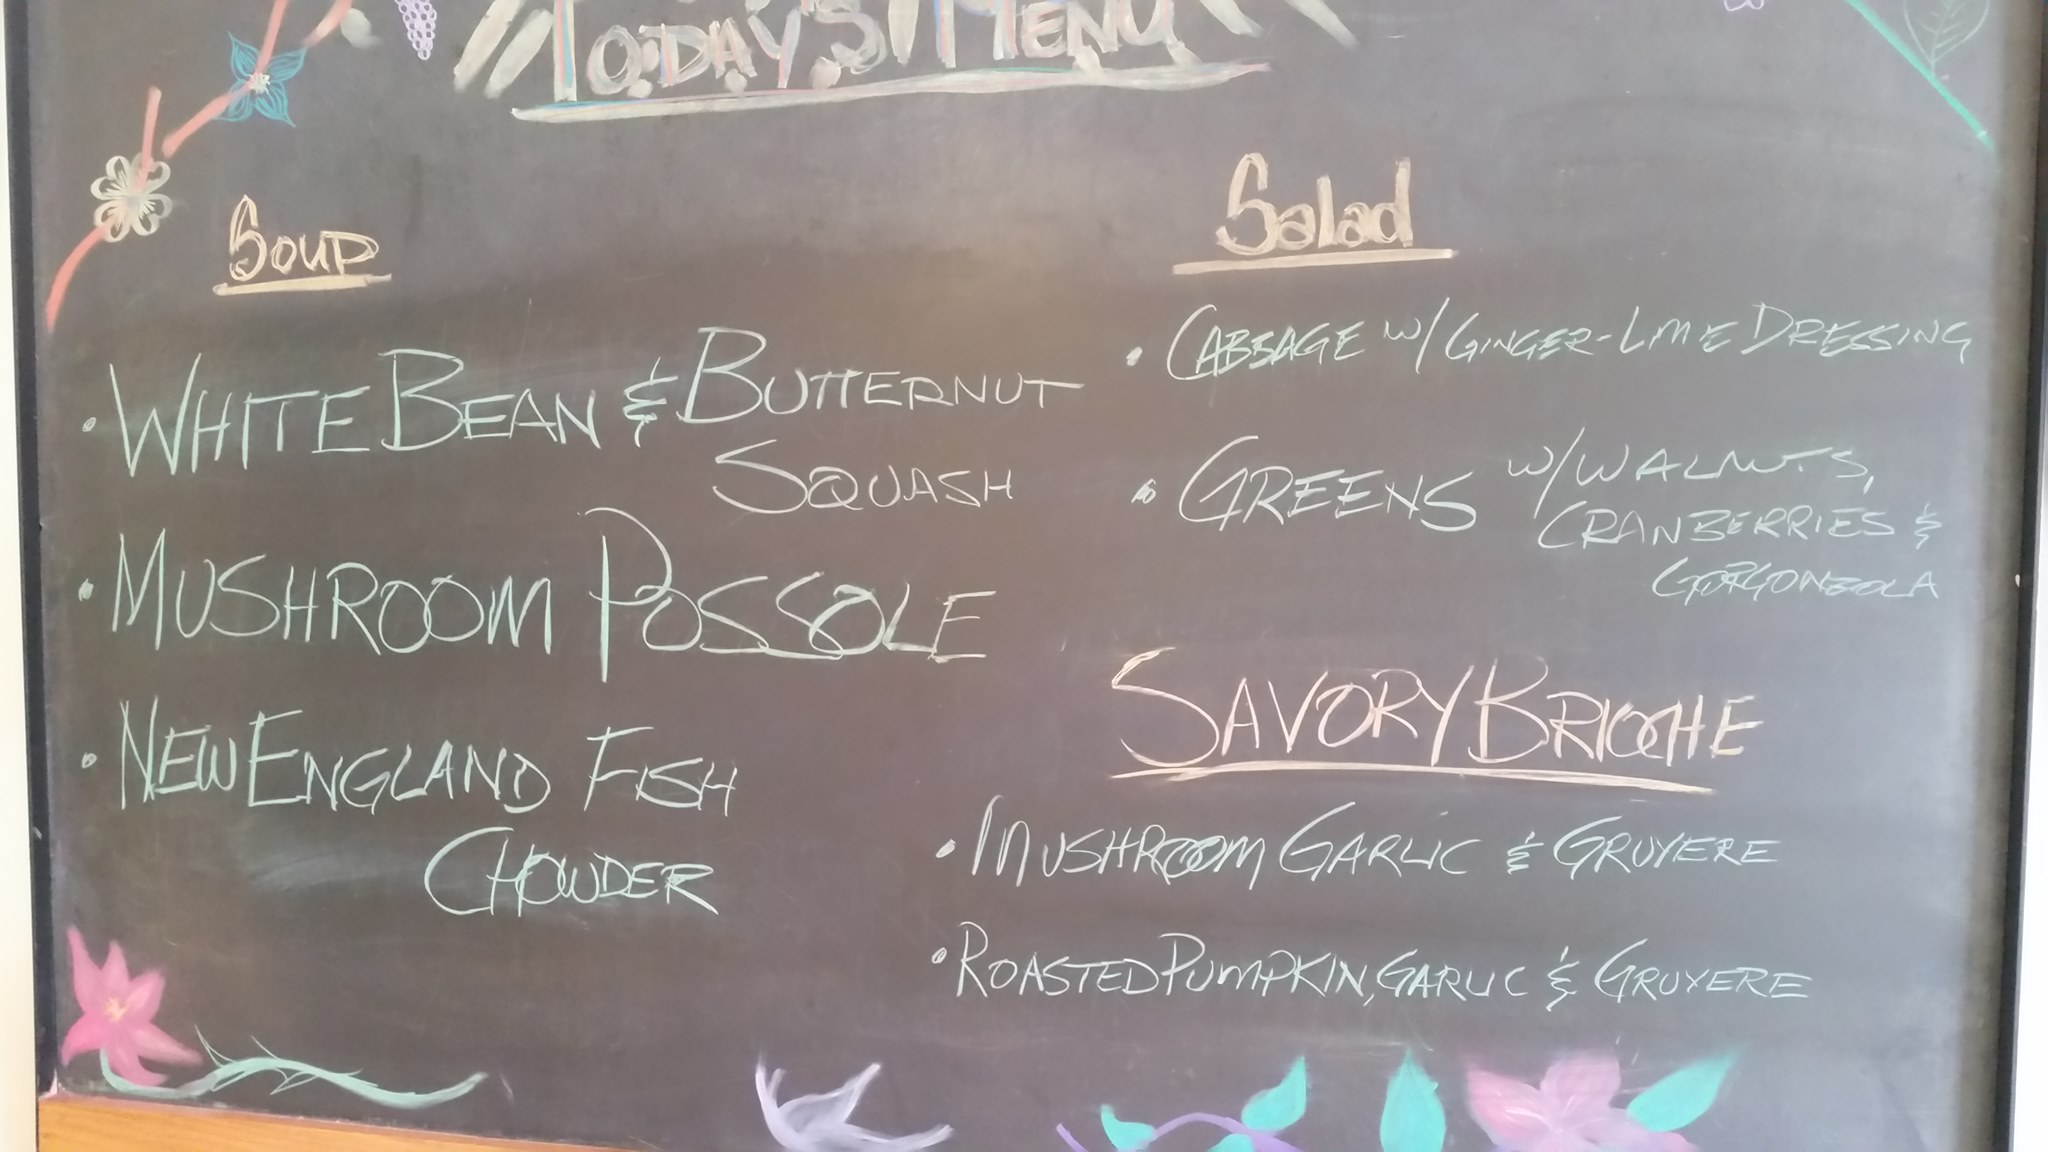 TODAY'S MENU
SOUP
• WHITE BEAN & BUTTERNUT
SQUASH
• MUSHROOM POSSOLE
• NEW ENGLAND FISH
CHOWDER
Salad
• CABBAGE W/ GINGER-LIME DRESSING
• GREENS W/ WALNUTS,
CRANBERRIES &
GORGONZOLA
SAVORY BRIOCHE
• MUSHROOM GARLIC & GRUYERE
• ROASTED PUMPKIN, GARLIC & GRUYERE